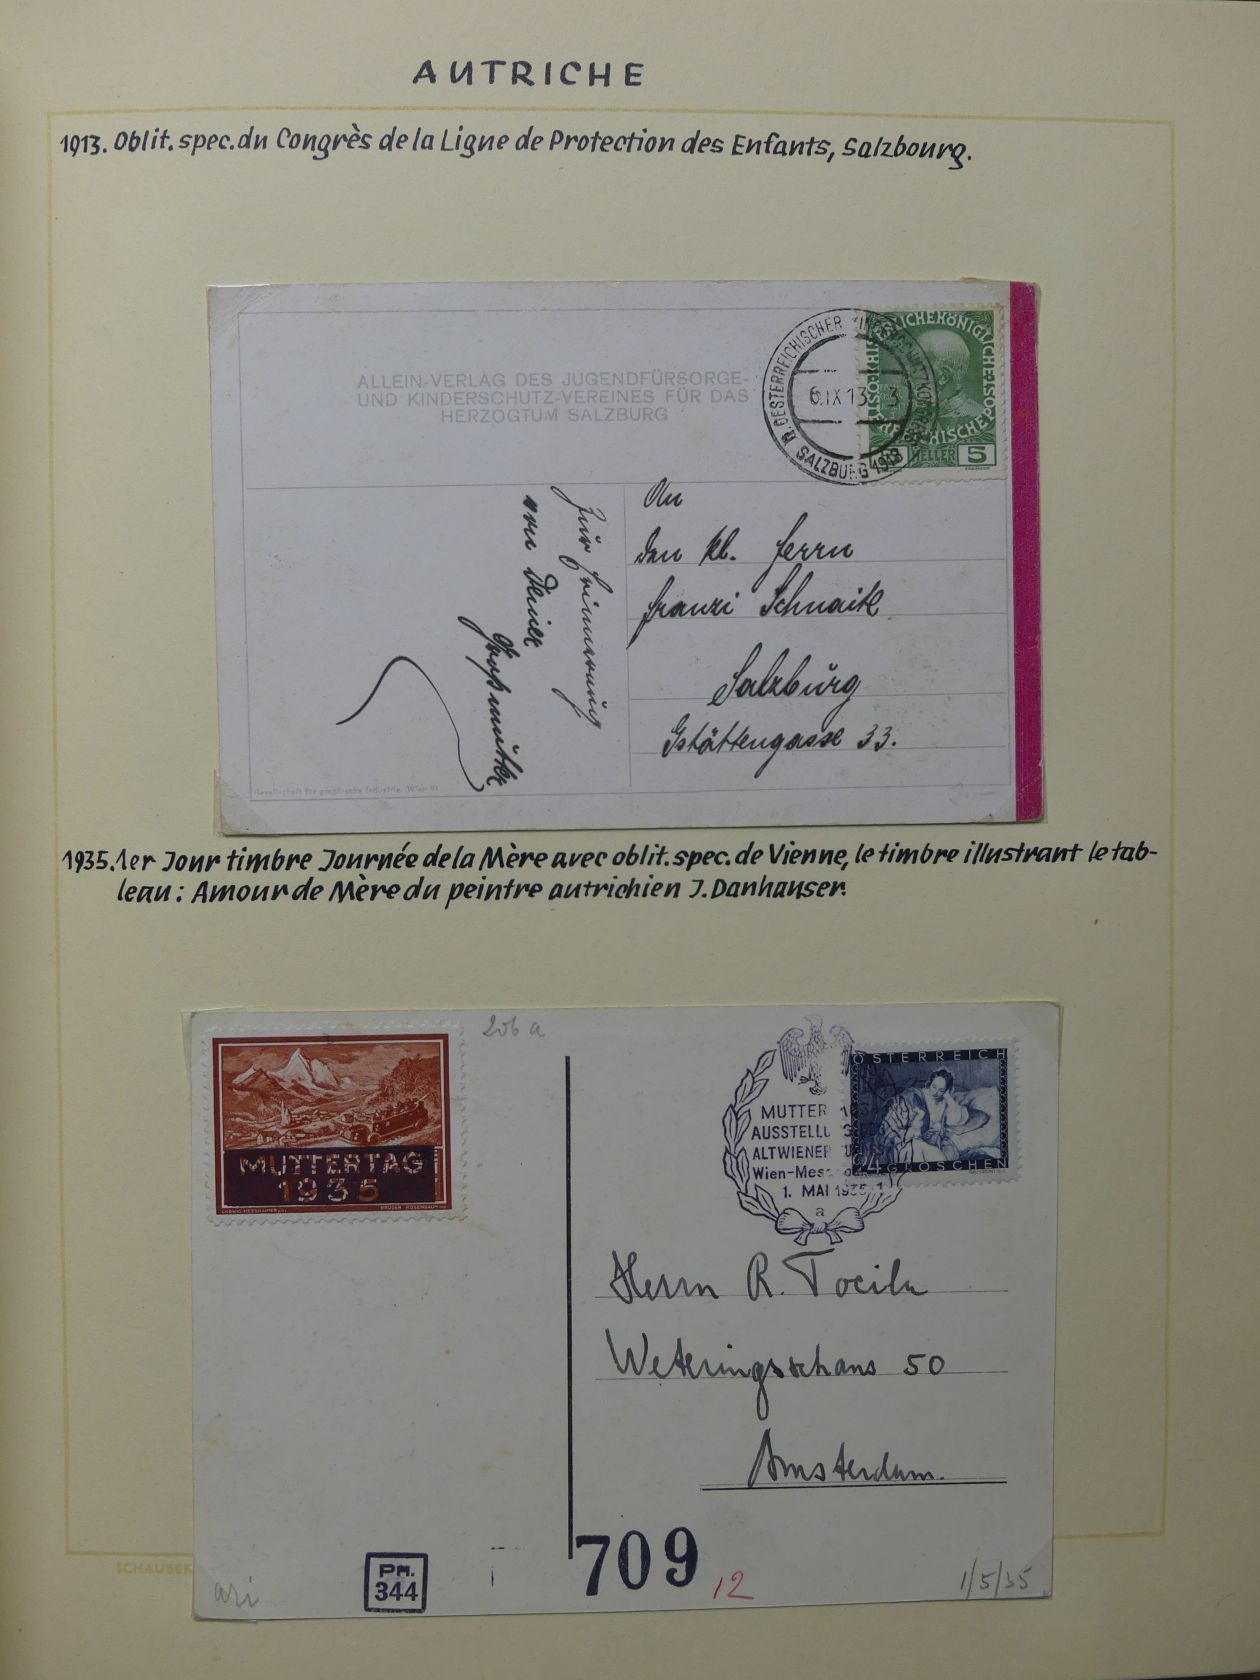 AUTRICHE
1913. Oblit. spec. du Congrès de la Ligne de Protection des Enfants, Salzbourg.
ALLEIN-VERLAG DES JUGENDFÜRSORGE-
UND KINDERSCHUTZ-VEREINES FÜR DAS
HERZOGTUM SALZBURG
II. OESTERREICHISCHER
6.IX.13 3
SALZBURG 1913
HELLER 5
An
den kl. Herrn
Franzi Schnaitl
Salzburg
Gstättengasse 33.
Zur Erinnerung
von Deiner
Großmutter
Gesellschaft für graphische Industrie, Wien VI
1935. 1er Jour timbre Journée de la Mère avec oblit. spec. de Vienne, le timbre illustrant le tab-
leau: Amour de Mère du peintre autrichien J. Danhauser.
206 a
MUTTERTAG
1935
LUDWIG HESSHAIMER
BRÜDER ROSENBAUM
MUTTER
AUSSTELLUNG
ALTWIENER
Wien-Messe
1. MAI 1935
a
ÖSTERREICH
24 GROSCHEN
Herrn R. Tocila
Weteringschans 50
Amsterdam.
SCHAUBEK
Pm.
344
709
12
1/5/35